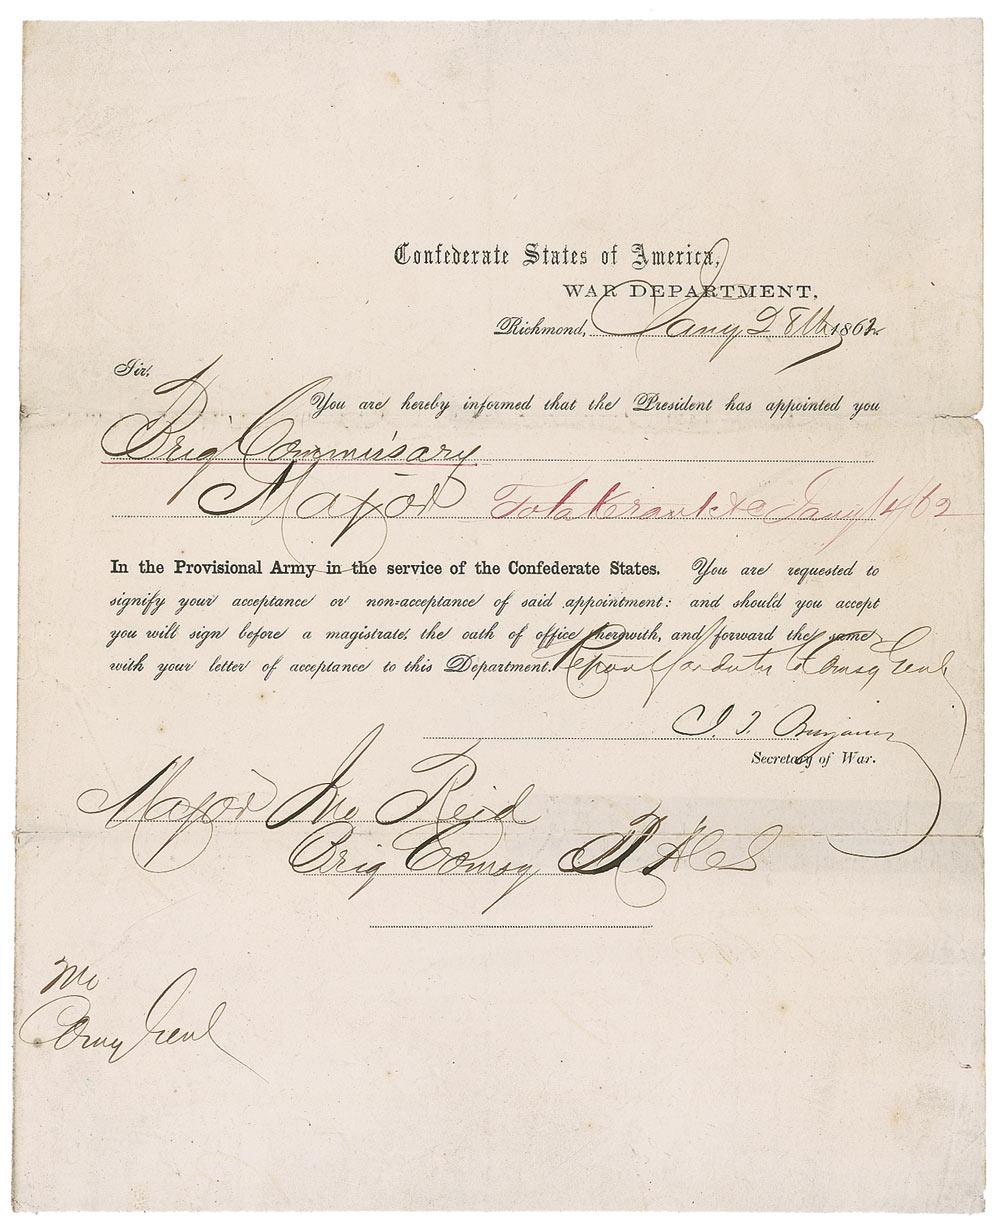 Confederate States of America,
WAR DEPARTMENT,
Richmond, Jany 28th 1862.
Sir:
You are hereby informed that the President has appointed you
Brig Commissary
Major To take rank &c Jany 14/62
In the Provisional Army in the service of the Confederate States. You are requested to
signify your acceptance or non-acceptance of said appointment: and should you accept
you will sign before a magistrate, the oath of office herewith, and forward the same
with your letter of acceptance to this Department. Report for duty to Comsy Genl
J. P. Benjamin
Secretary of War.
Major Jno Reid
Brig Comsy P A C S
Genl